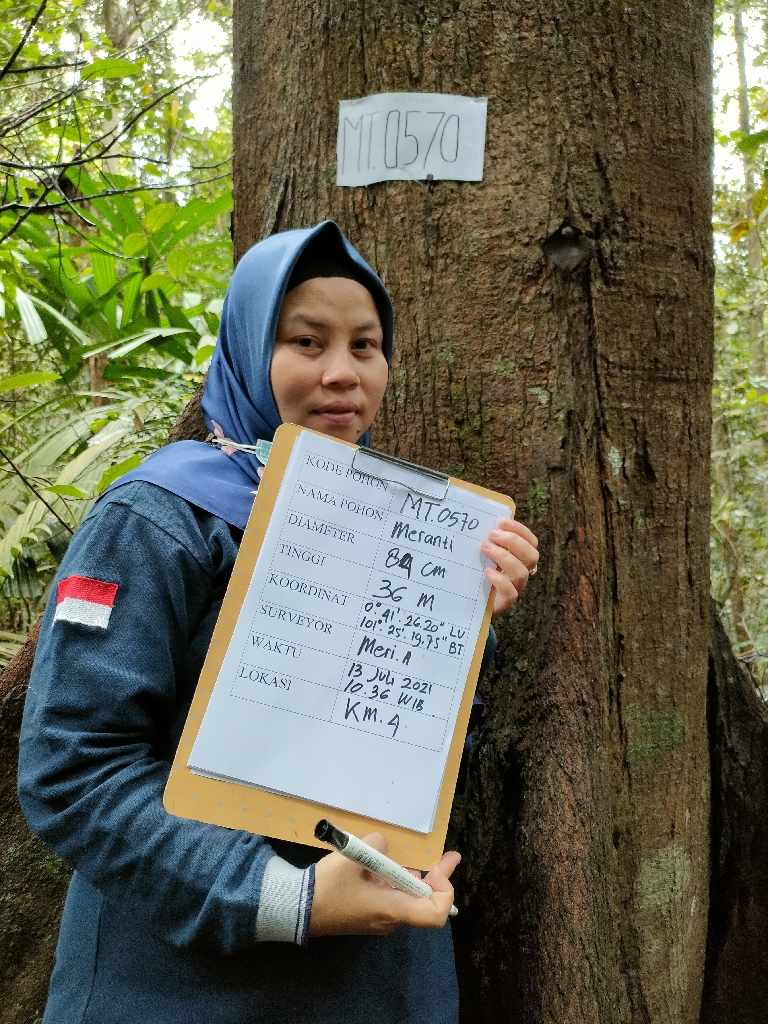 MT.0570
KODE POHON MT.0570
NAMA POHON Meranti
DIAMETER 84 cm
TINGGI 36 M
KOORDINAT 0°.41'.26.20" LU
101°.25'.19.75" BT
SURVEYOR Meri.A
WAKTU 13 Juli 2021
10.36 WIB
LOKASI KM.4